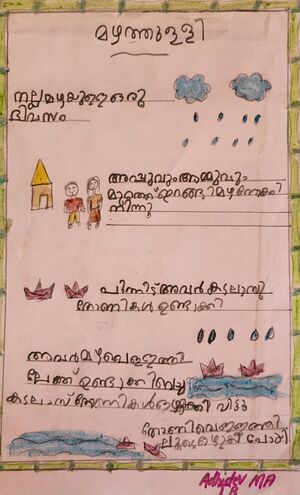 മഴത്തുള്ളി
നല്ല മഴയുള്ള ഒരു
ദിവസം
അപ്പുവും അമ്മുവും
മുറ്റത്ത് ഇറങ്ങി മഴ നോക്കി
നിന്നു
പിന്നീട് അവർ കടലാസു
തോണികൾ ഉണ്ടാക്കി
അവർ മഴവെള്ളത്തി
ലേക്ക് ഉണ്ടാക്കിവെച്ച
കടലാസ് തോണികൾ ഒഴുക്കി വിട്ടു
തോണി വെള്ളത്തി
ലൂടെ ഒഴുകി പോയി
Adhidev MA